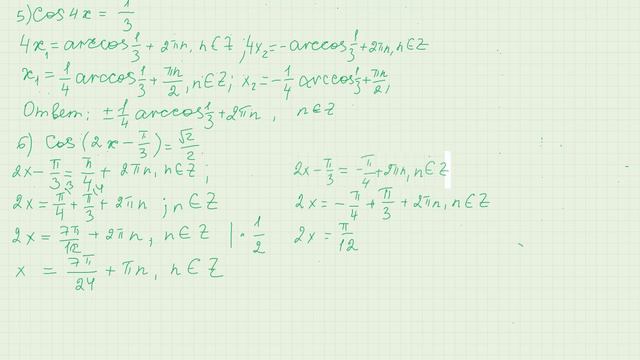 5) cos 4x = 1/3
4x₁ = arccos 1/3 + 2πn, n∈Z; 4x₂ = -arccos 1/3 + 2πn, n∈Z
x₁ = 1/4 arccos 1/3 + πn/2, n∈Z; x₂ = -1/4 arccos 1/3 + πn/2,
Ответ: ± 1/4 arccos 1/3 + 2πn, n∈Z
6) cos(2x - π/3) = √2/2
2x - π/3 = π/4 + 2πn, n∈Z;
2x = π/4 + π/3 + 2πn; n∈Z
2x = 7π/12 + 2πn, n∈Z | · 1/2
x = 7π/24 + πn, n∈Z
2x - π/3 = -π/4 + 2πn, n∈Z
2x = -π/4 + π/3 + 2πn, n∈Z
2x = π/12